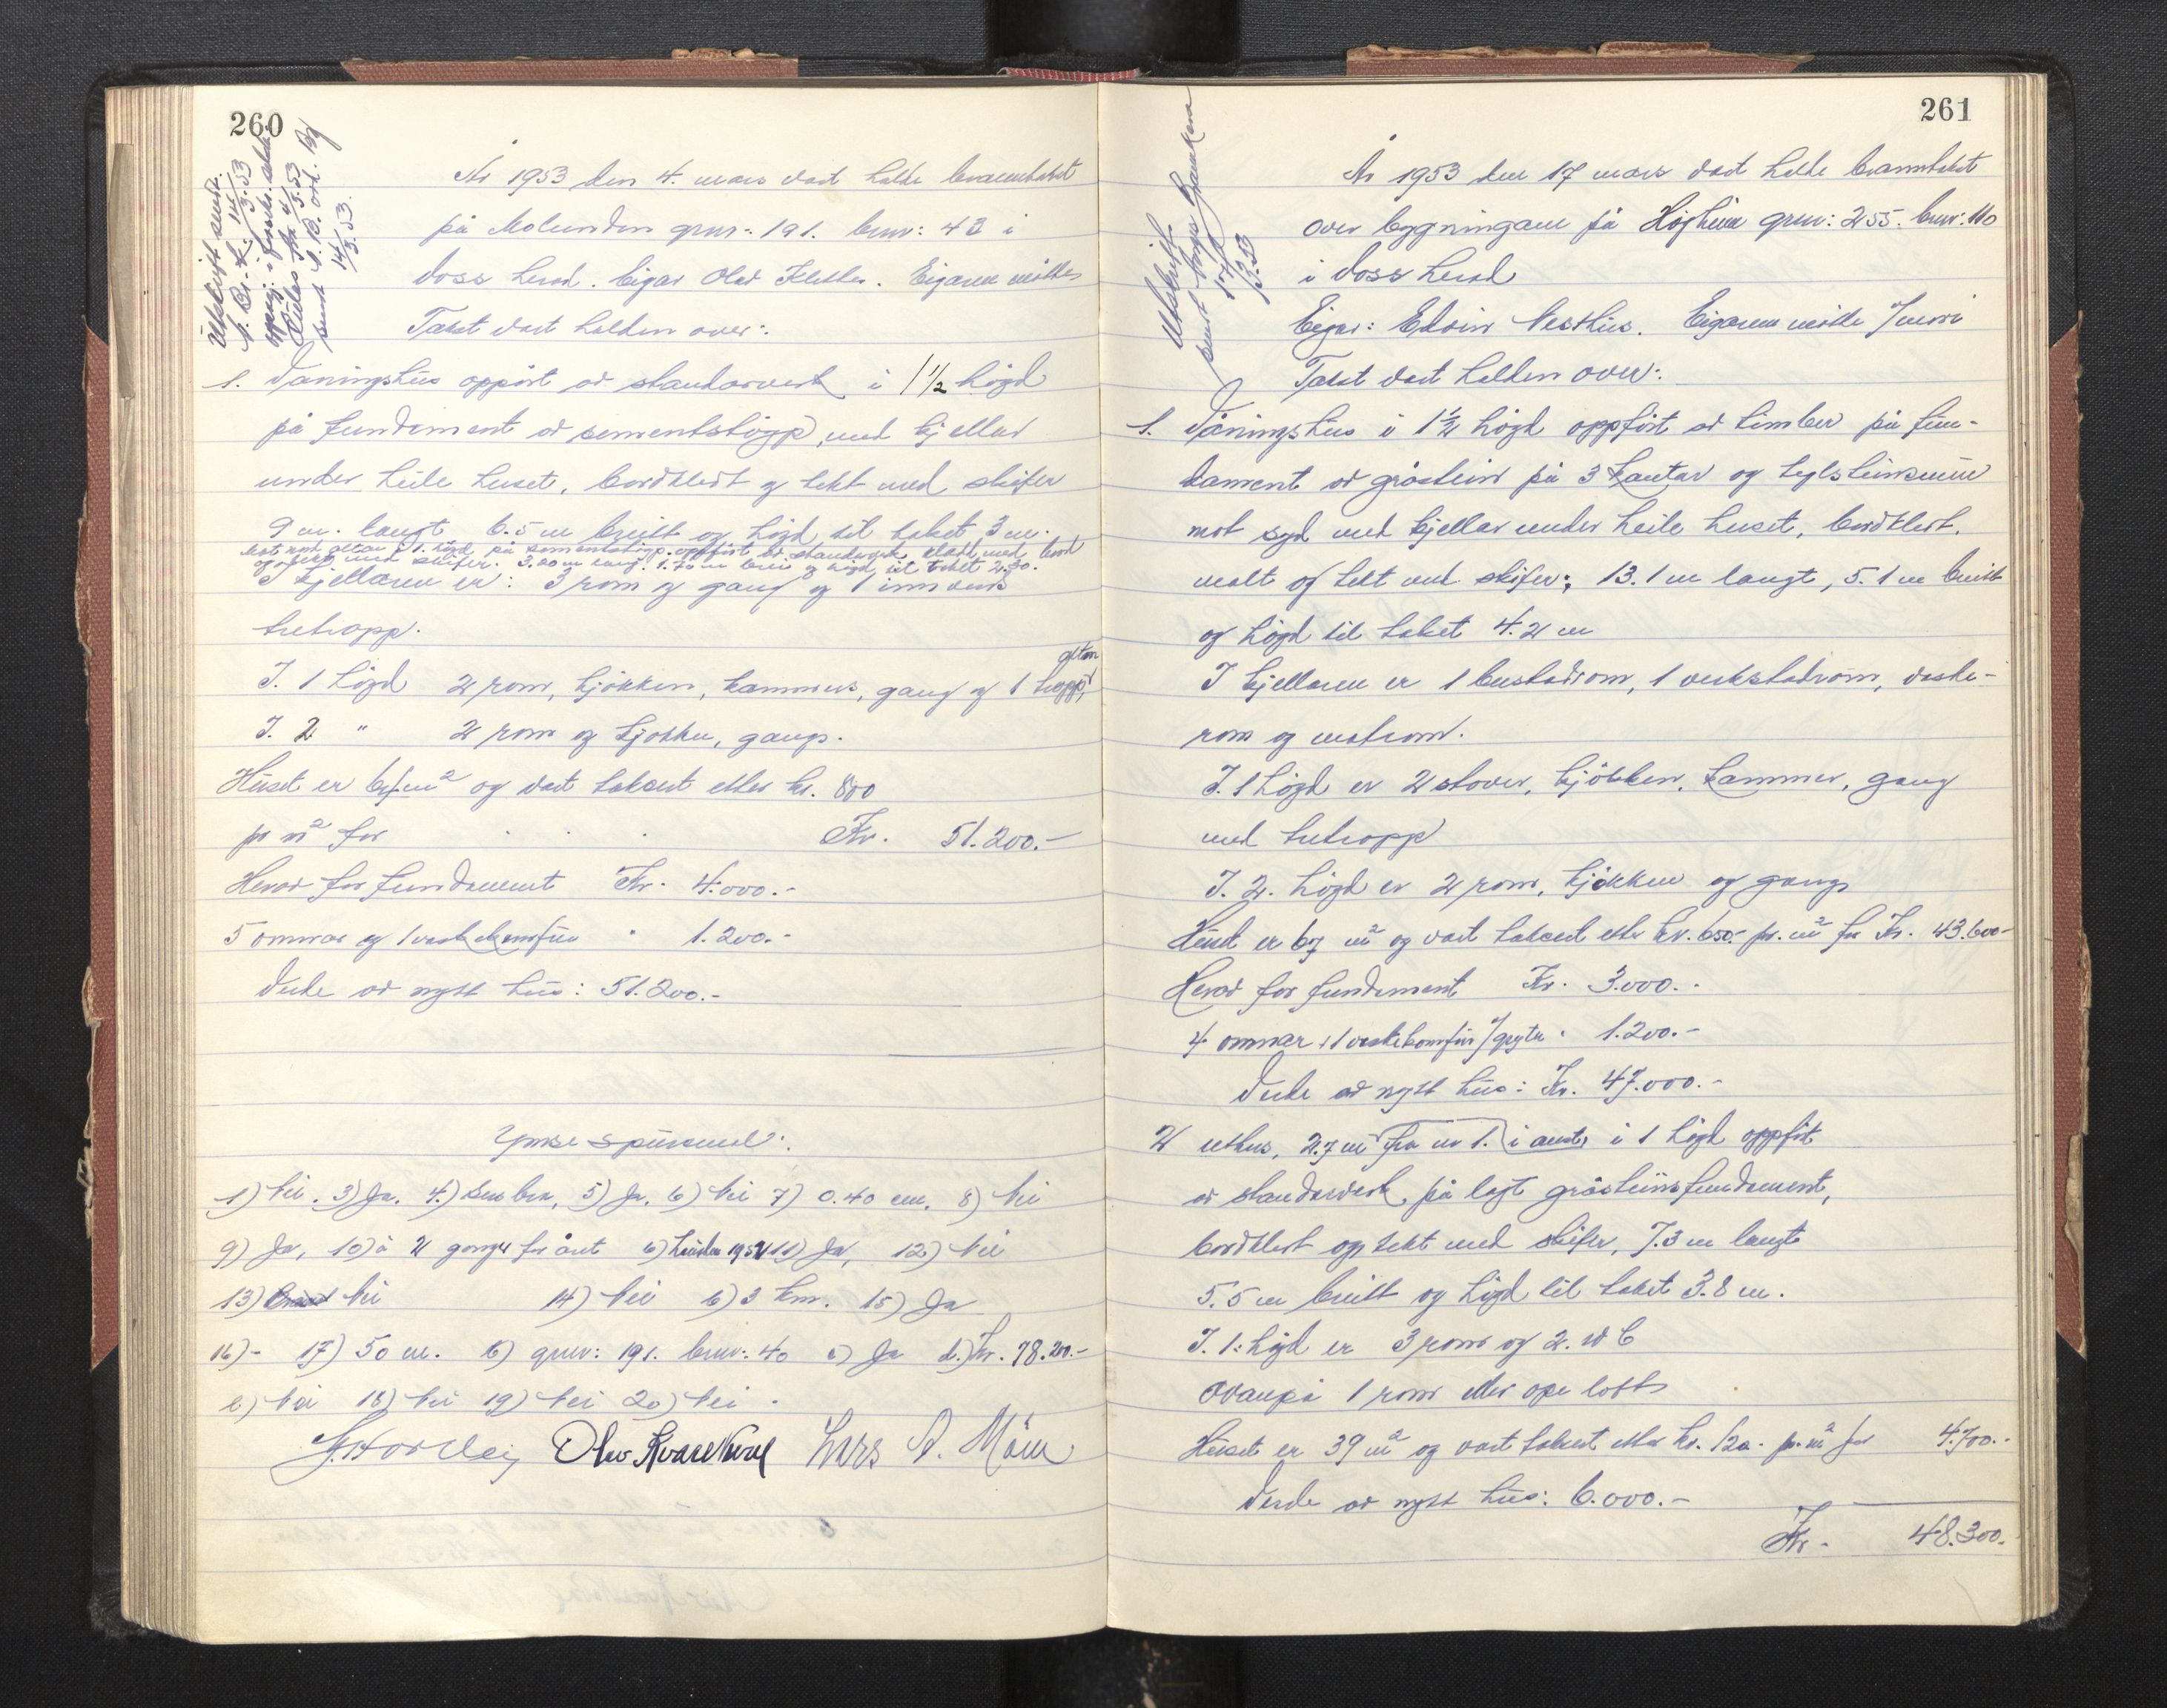 260
Utskrift sendt.
År 1953 den 4. mars vart halde branntakst
på Molunden gnr: 191. bnr: 43 i
Voss herad. Eigar Olav Klette. Eigaren møtte
Takst vart halden over:
1. Våningshus oppført av standarverk i 1 1/2 högd
på fundament av sementstøyp, med kjellar
under heile huset, bordkledt og tekt med skifer
9 m. langt 6.5 m breitt og högd til taket 3 m.
mot nord altan i 1. högd på sementstöyp. oppført av standarverk kledd med bord
og tekt med skifer. 3.00 m lang. 1.70 m brei og högd til taket 2.30.
I kjellaren er: 3 rom og gang og 1 innv.
tretropp.
altan
I. 1 högd 2 rom, kjökken, kammers, gang og 1 tropp,
I. 2 " 2 rom og kjökken, gang.
Huset er 64 m² og vart taksert etter kr. 800
pr m² for . . . Kr. 51.200.-
Herav for fundament Kr. 4.000.-
5 omnar og 1 vaskekomfur " 1.200.-
Verde av nytt hus: 51.200.-
Ymse spursmål:
1) Nei. 3) Ja. 4.) 5) Ja. 6) Nei 7) 0.40 cm. 8) Nei
9) Ja, 10) a 2 gonger for året b) hausten 1952 11) Ja, 12) Nei
13) Nei 14) Nei b) 3 km. 15) Ja
16) - 17) 50 m. b) gnr: 191. bnr: 40 c) Ja d.) Kr. 78.200.-
e) Nei 18) Nei 19) Nei 20) Nei.
Olav Kvarekval Lars A. Möen
261
Utskrift
sendt
År 1953 den 17 mars vart halde branntakst
over bygningane på Högheim gnr: 255. bnr: 110
i Voss herad
Eigar: Edvin Nesthus. Eigaren møtte
Takst vart halden over:
1. Våningshus i 1 1/2 högd oppført av timber på fun-
dament av gråstein på 3 kantar og teglsteinsmur
mot syd med kjellar under heile huset, bordkledt.
malt og tekt med skifer; 13.1 m langt, 5.1 m breitt
og högd til taket 4.2 m
I kjellaren er 1 bustadrom, 1 verkstadrom, vaske-
rom og matrom.
I. 1 högd er 2 stover, kjökken, kammer, gang
med tretropp
I. 2. högd er 2 rom, kjökken og gang
Huset er 67 m² og vart taksert etter kr. 650.- pr. m² for Kr. 43.600-
Herav for fundament Kr. 3.000.-
4 omnar + 1 vaskekomfur m/gryte " 1.200.-
Verde av nytt hus: Kr. 47.000.-
2 uthus, 2.7 m frå nr 1. i aust, i 1 högd oppført
av standarverk på lagt gråsteinsfundament,
bordkledt og tekt med skifer, 7.3 m langt
5.5 m breitt og högd til taket 3.8 m.
I. 1. högd er 3 rom og 2. W C
Ovanpå 1 rom elles ope loft
Huset er 39 m² og vart taksert etter kr. 120.- pr. m² for 4.700.-
Verde av nytt hus: 6.000.-
Kr. 48.300.